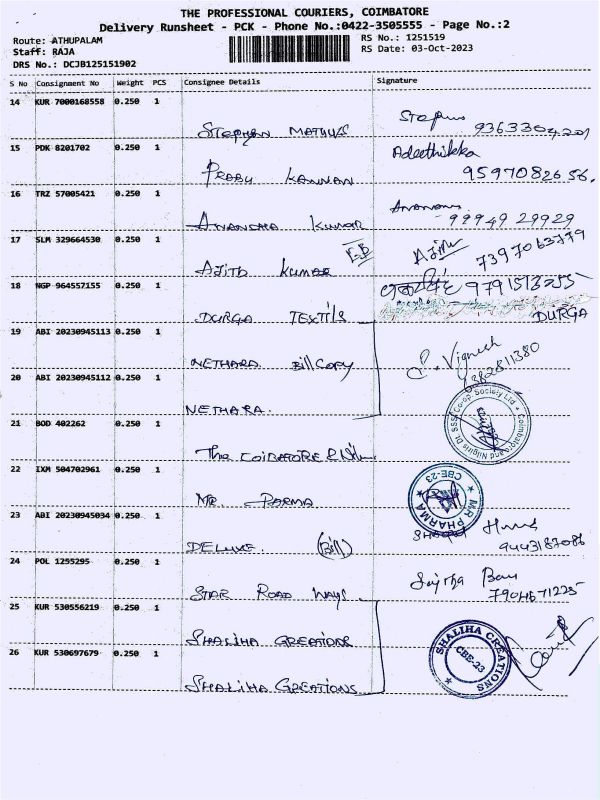 THE PROFESSIONAL COURIERS, COIMBATORE
Delivery Runsheet - PCK - Phone No.:0422-3505555 - Page No.:2
Route: ATHUPALAM
RS No.: 1251519
Staff: RAJA
RS Date: 03-Oct-2023
DRS No.: DCJB125151902
S No Consignment No Weight PCS Consignee Details Signature
14 KUR 7000168558 0.250 1
STEPHAN
15 PDK 8201702 0.250 1
PRABU KANNAN 9597082656.
16 TRZ 57005421 0.250 1
KUMAR 99949 29929
17 SLM 329664530 0.250 1
AJITH KUMAR EB 7397063779
18 NGP 964557155 0.250 1
DURGA TEXTILS DURGA
19 ABI 20230945113 0.250 1
NETHARA Bill Copy Vignesh
20 ABI 20230945112 0.250 1
NETHARA.
21 BOD 402262 0.250 1
The COIBATORE Co-op. Society Ltd
22 IXM 504702961 0.250 1
MR PARMA MR PHARMA CBE-23
23 ABI 20230945034 0.250 1
DELUXE. (Bill) 9443187086
24 POL 1255295 0.250 1
STAR ROAD WAYS
25 KUR 530556219 0.250 1
SHALIHA CREATIONS
26 KUR 530697679 0.250 1
SHALIHA CREATIONS SHALIHA CREATIONS CBE-23